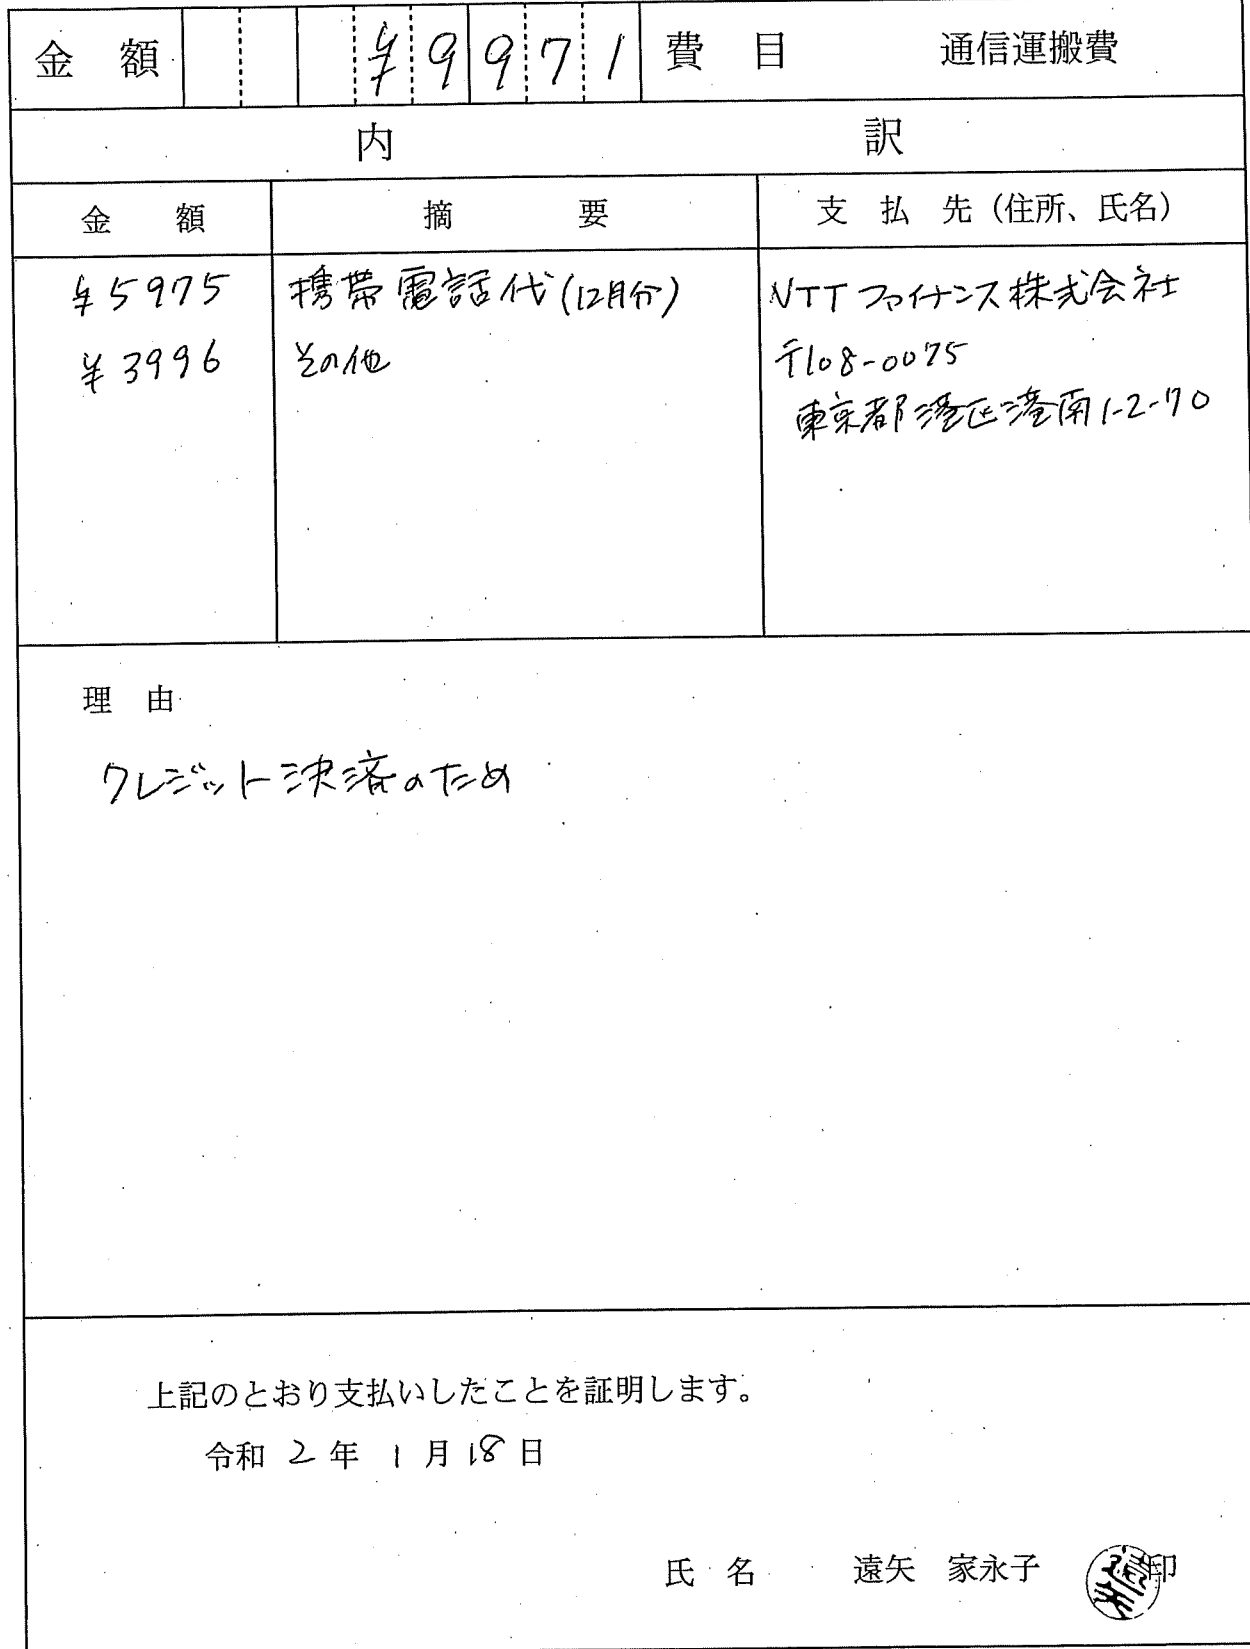 金 額 ¥9971 費 目 通信運搬費
内 訳
金 額 摘 要 支 払 先（住所、氏名）
¥5975 携帯電話代(12月分) NTTファイナンス株式会社
¥3996 その他 〒108-0075
東京都港区港南1-2-70
理 由
クレジット決済のため
上記のとおり支払いしたことを証明します。
令和 2 年 1 月 18 日
氏 名 遠矢 家永子 印
遠矢